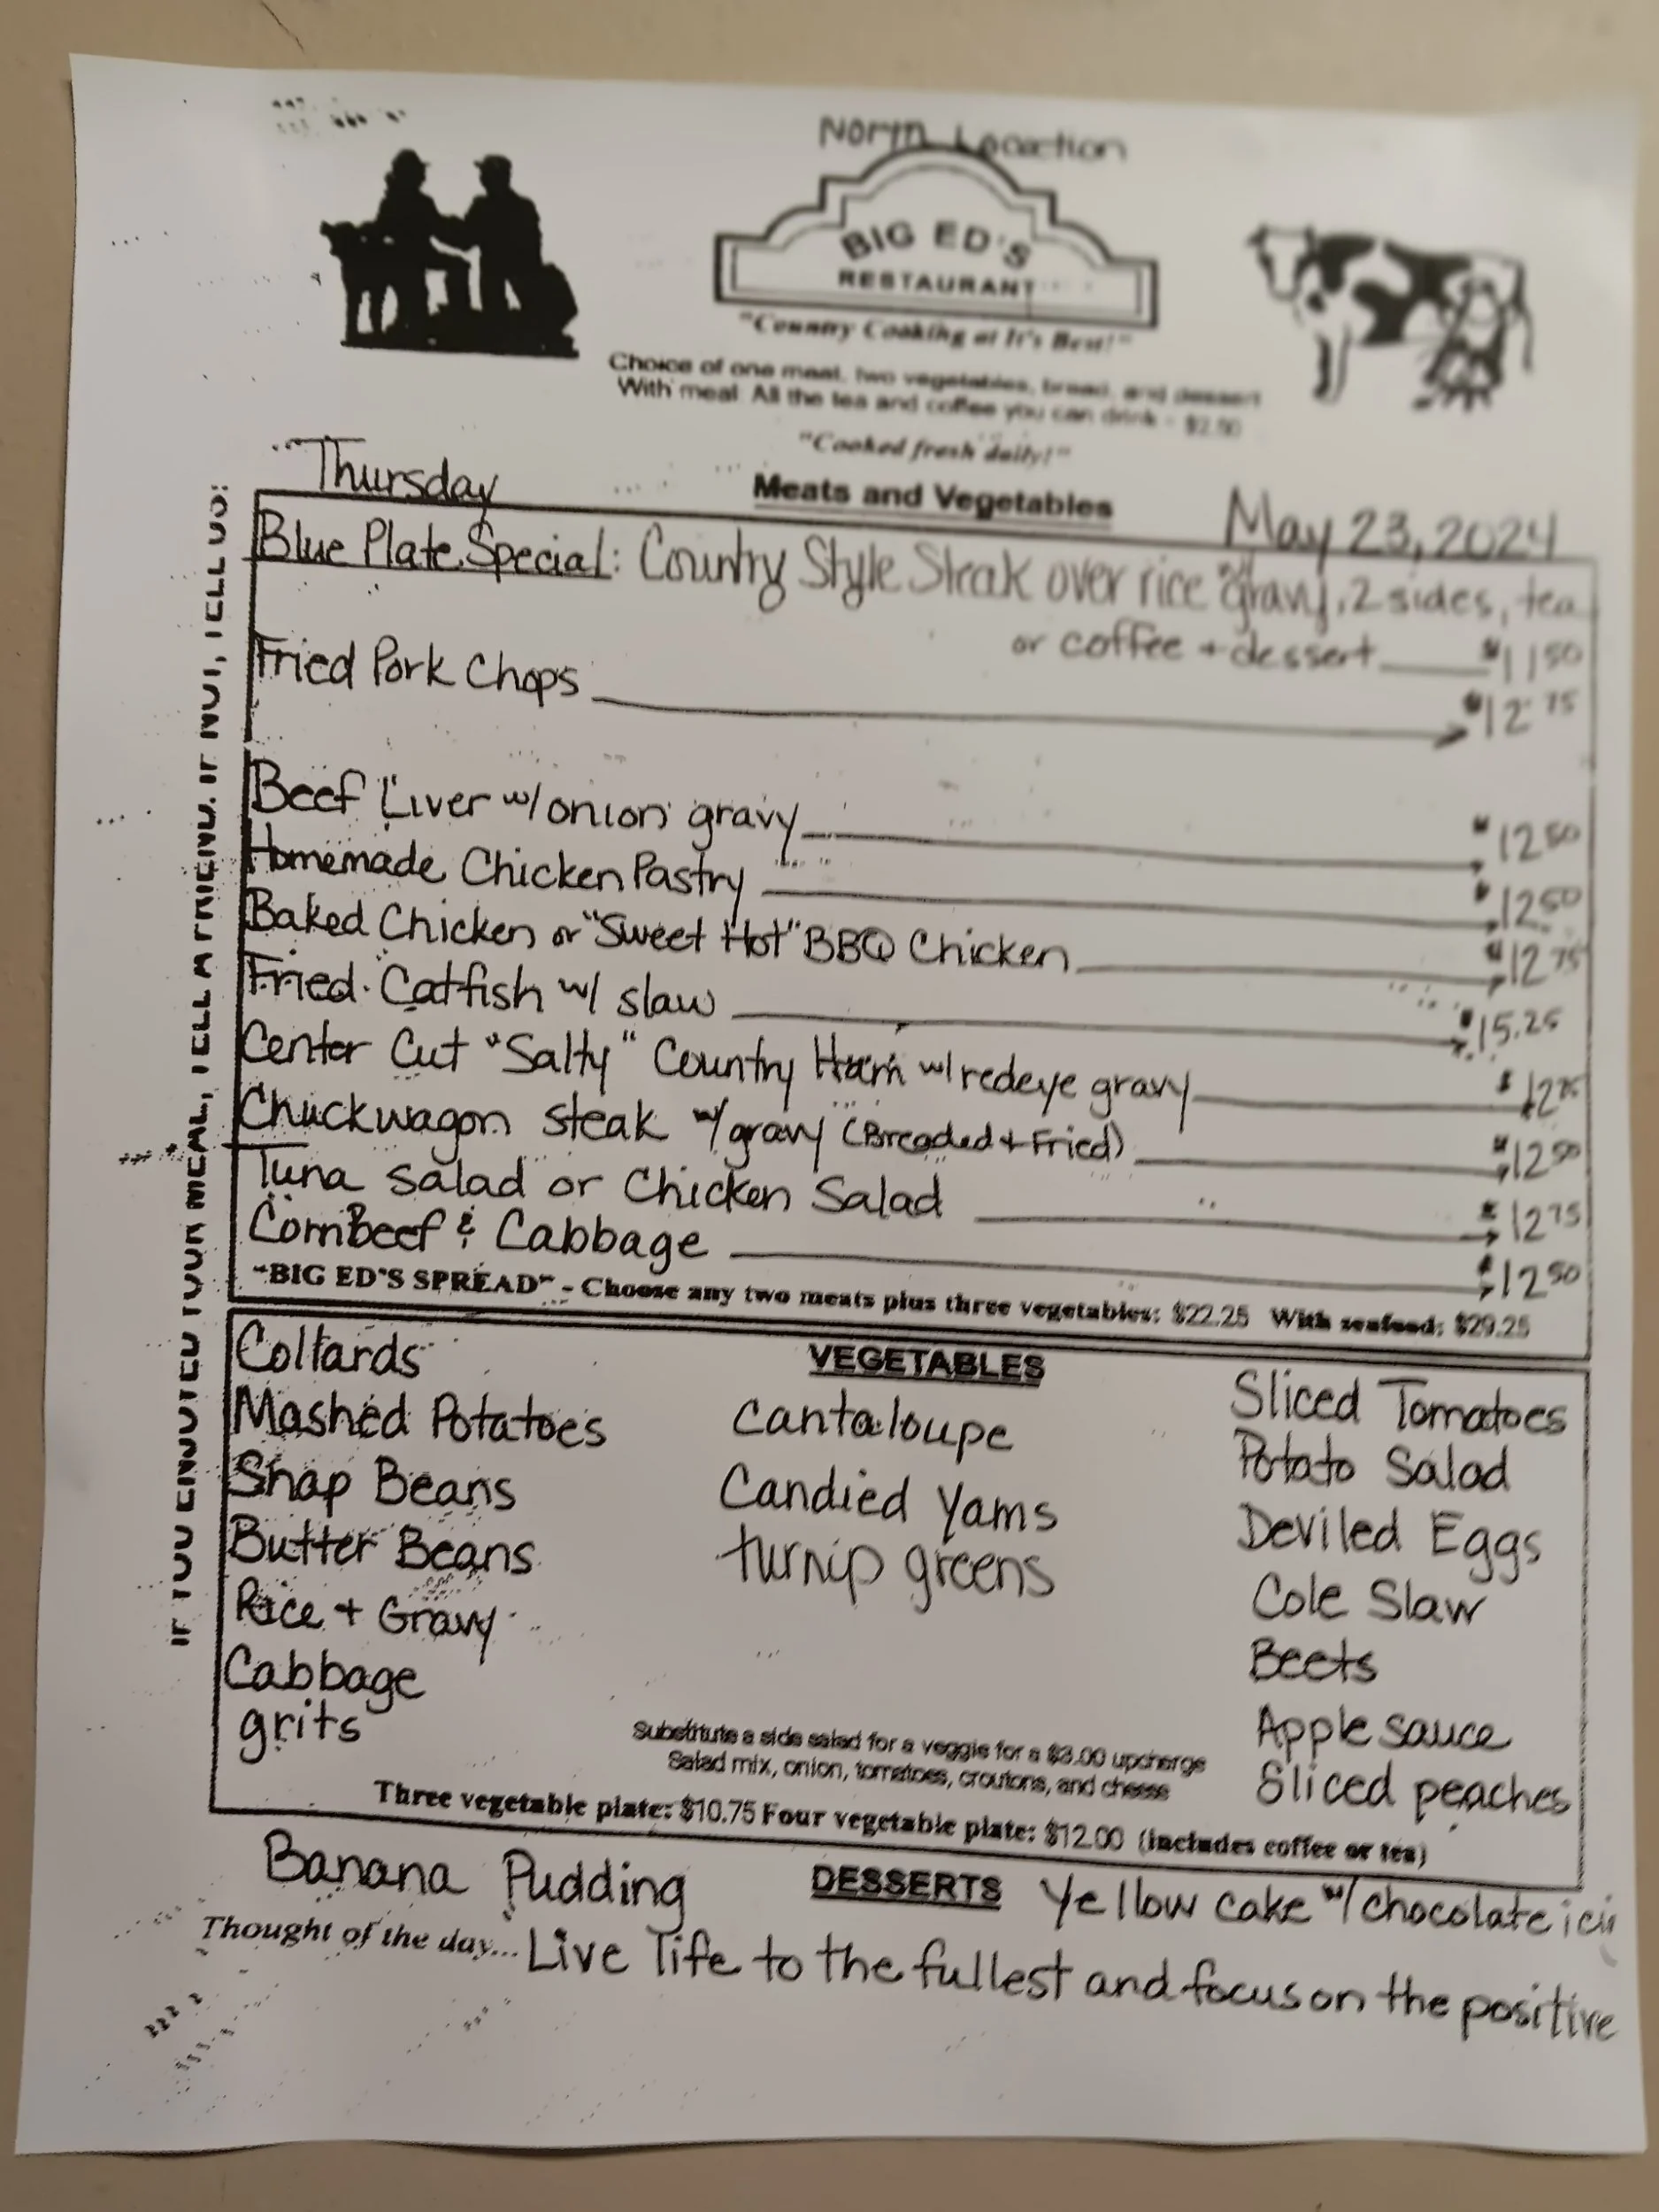 North Location
BIG ED'S
RESTAURANT
"Country Cooking at It's Best!"
Choice of one meat, two vegetables, bread, and dessert
With meal: All the tea and coffee you can drink - $2.50
"Cooked fresh daily!"
Thursday
Meats and Vegetables
May 23, 2024
Blue Plate Special: Country Style Steak over rice w/ gravy, 2 sides, tea
or coffee + dessert $11 50
Fried Pork Chops $12 75
Beef Liver w/ onion gravy $12 50
Homemade Chicken Pastry $12 50
Baked Chicken or "Sweet Hot" BBQ Chicken $12 75
Fried Catfish w/ slaw $15.25
Center Cut "Salty" Country Ham w/ redeye gravy $12 75
Chuckwagon steak w/ gravy (Breaded + Fried) $12 50
Tuna Salad or Chicken Salad $12 75
CornBeef & Cabbage $12 50
"BIG ED'S SPREAD" - Choose any two meats plus three vegetables: $22.25 With seafood: $29.25
VEGETABLES
Collards
Mashed Potatoes
Snap Beans
Butter Beans
Rice + Gravy
Cabbage
grits
Cantaloupe
Candied Yams
turnip greens
Sliced Tomatoes
Potato Salad
Deviled Eggs
Cole Slaw
Beets
Apple sauce
Sliced peaches
Substitute a side salad for a veggie for a $3.00 upcharge
Salad mix, onion, tomatoes, croutons, and cheese
Three vegetable plate: $10.75 Four vegetable plate: $12.00 (includes coffee or tea)
DESSERTS
Banana Pudding
Yellow cake w/ chocolate icin
Thought of the day... Live life to the fullest and focus on the positive
IF YOU ENJOYED YOUR MEAL, TELL A FRIEND. IF NOT, TELL US!